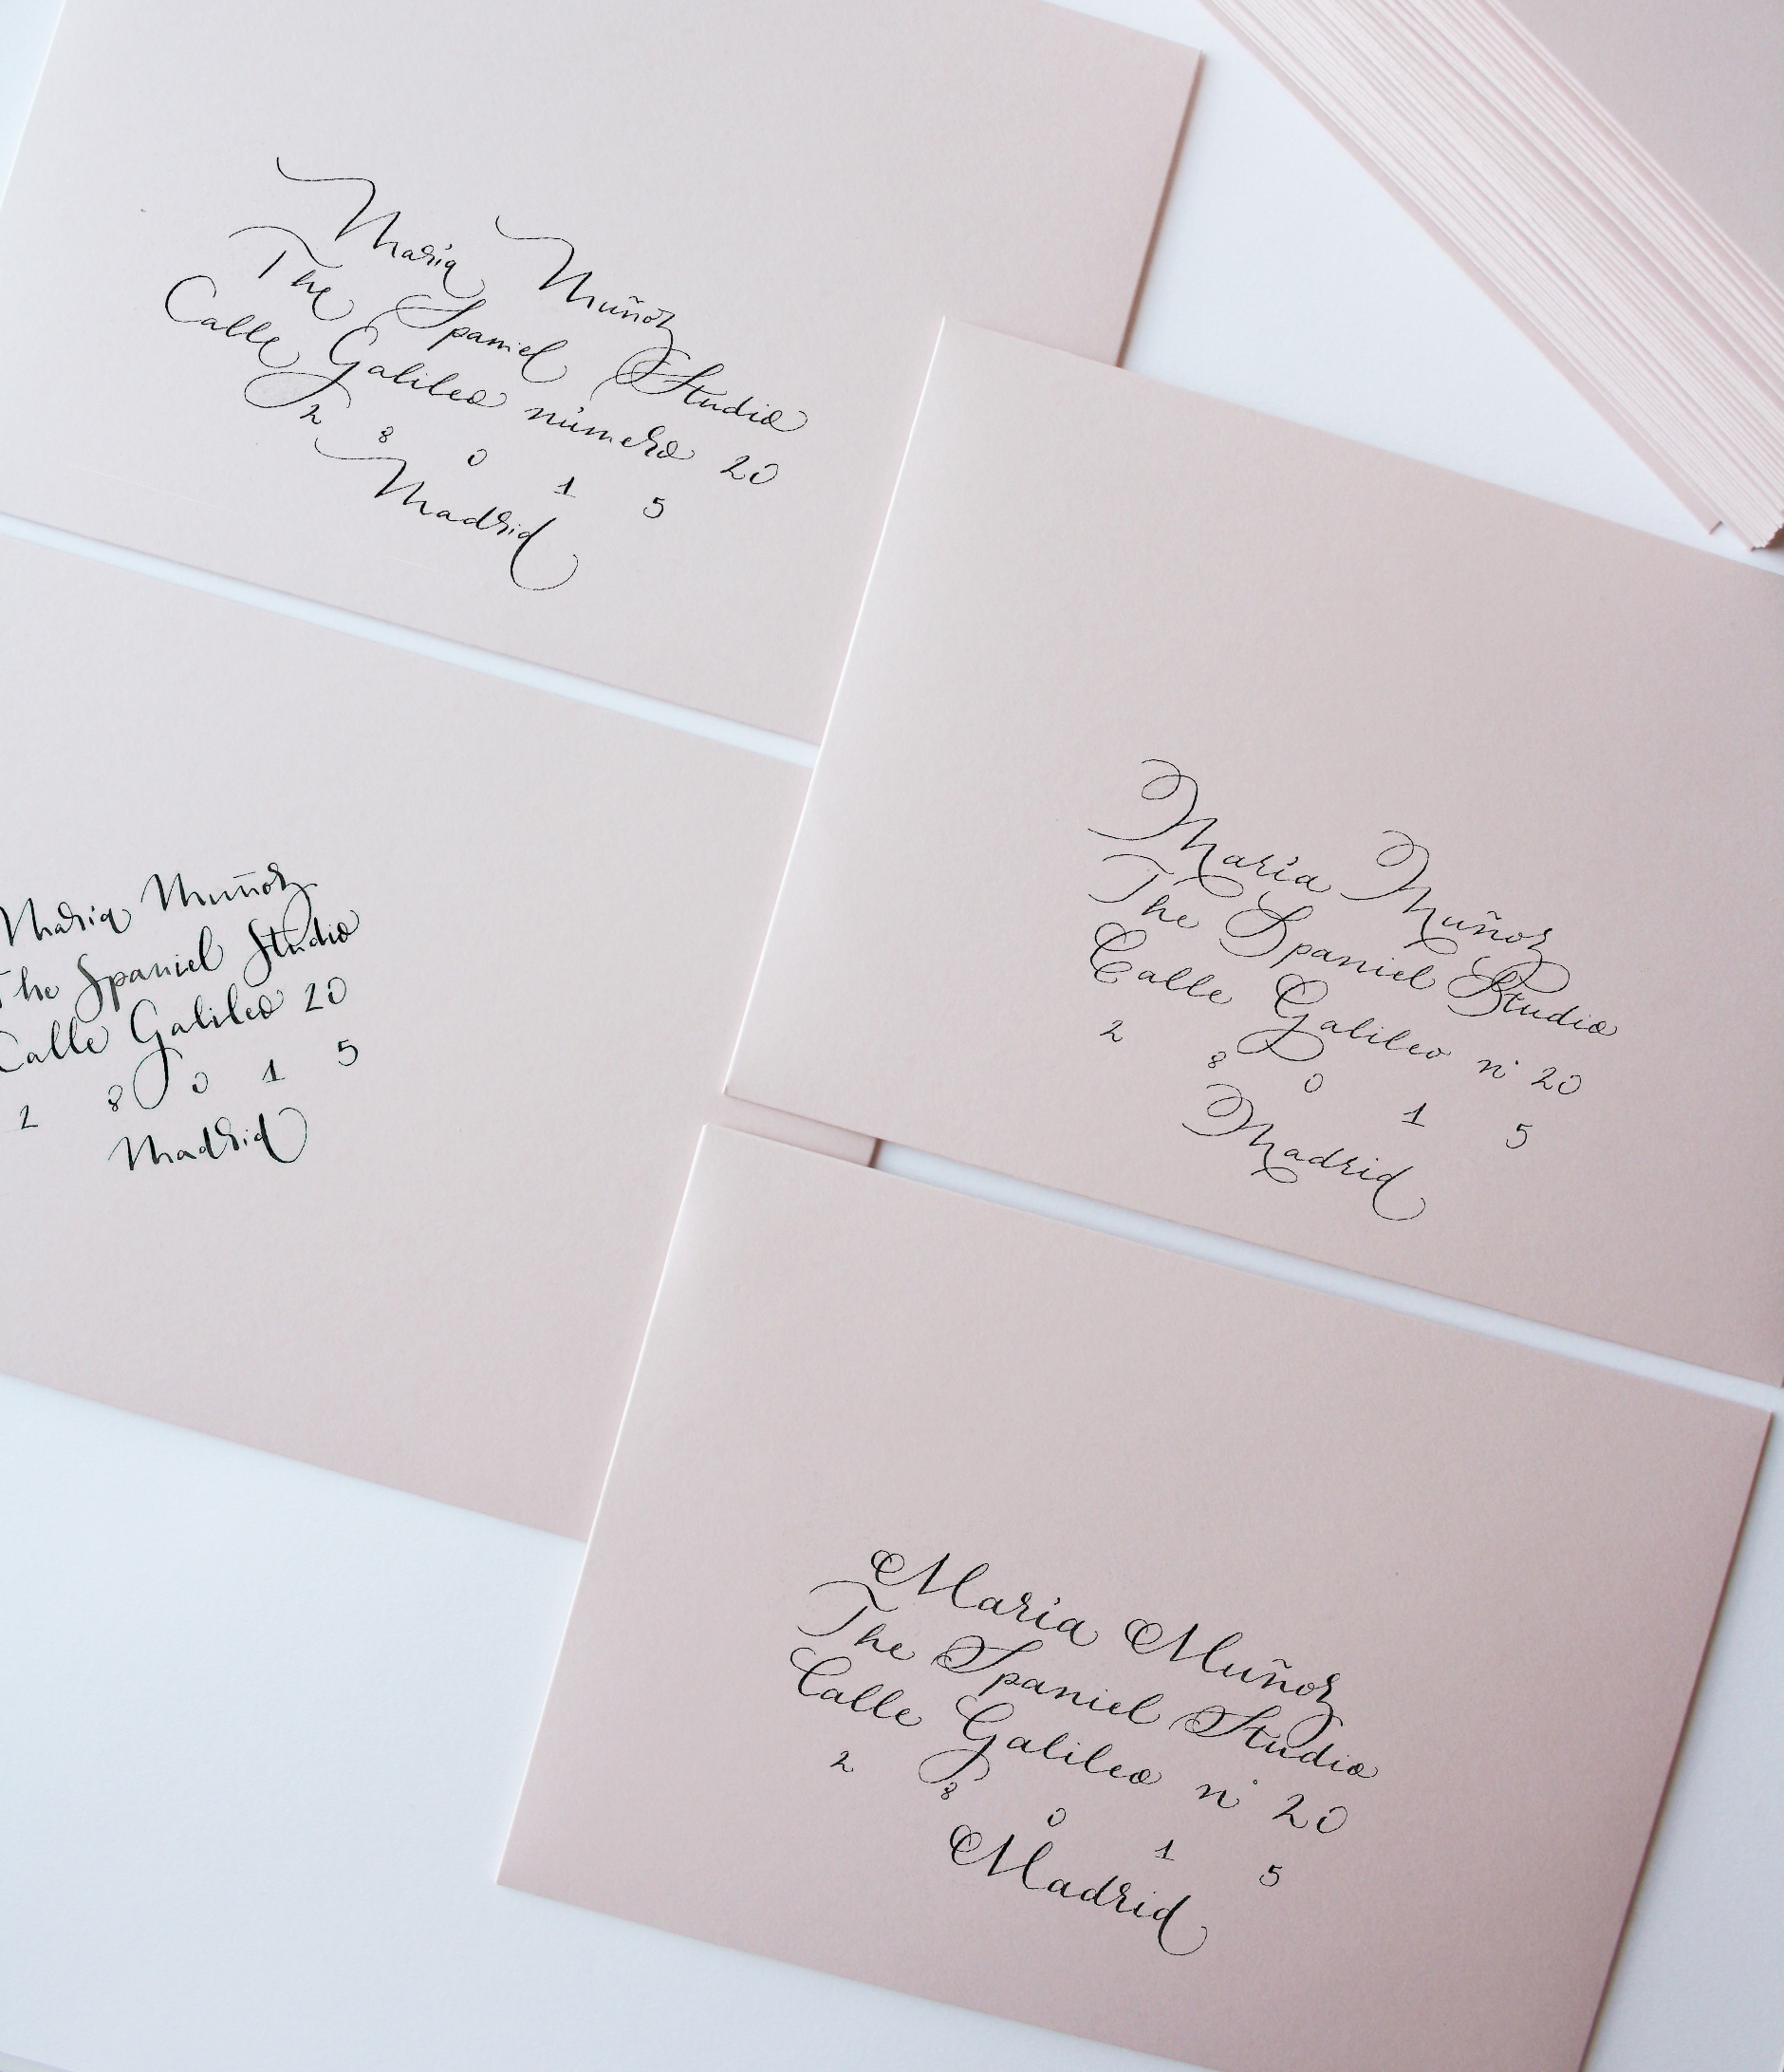 Maria Muñoz
The Spaniel Studio
Calle Galileo número 20
2 8 0 1 5
Madrid
Maria Muñoz
The Spaniel Studio
Calle Galileo 20
2 8 0 1 5
Madrid
María Muñoz
The Spaniel Studio
Calle Galileo n° 20
2 8 0 1 5
Madrid
María Muñoz
The Spaniel Studio
Calle Galileo n° 20
2 8 0 1 5
Madrid